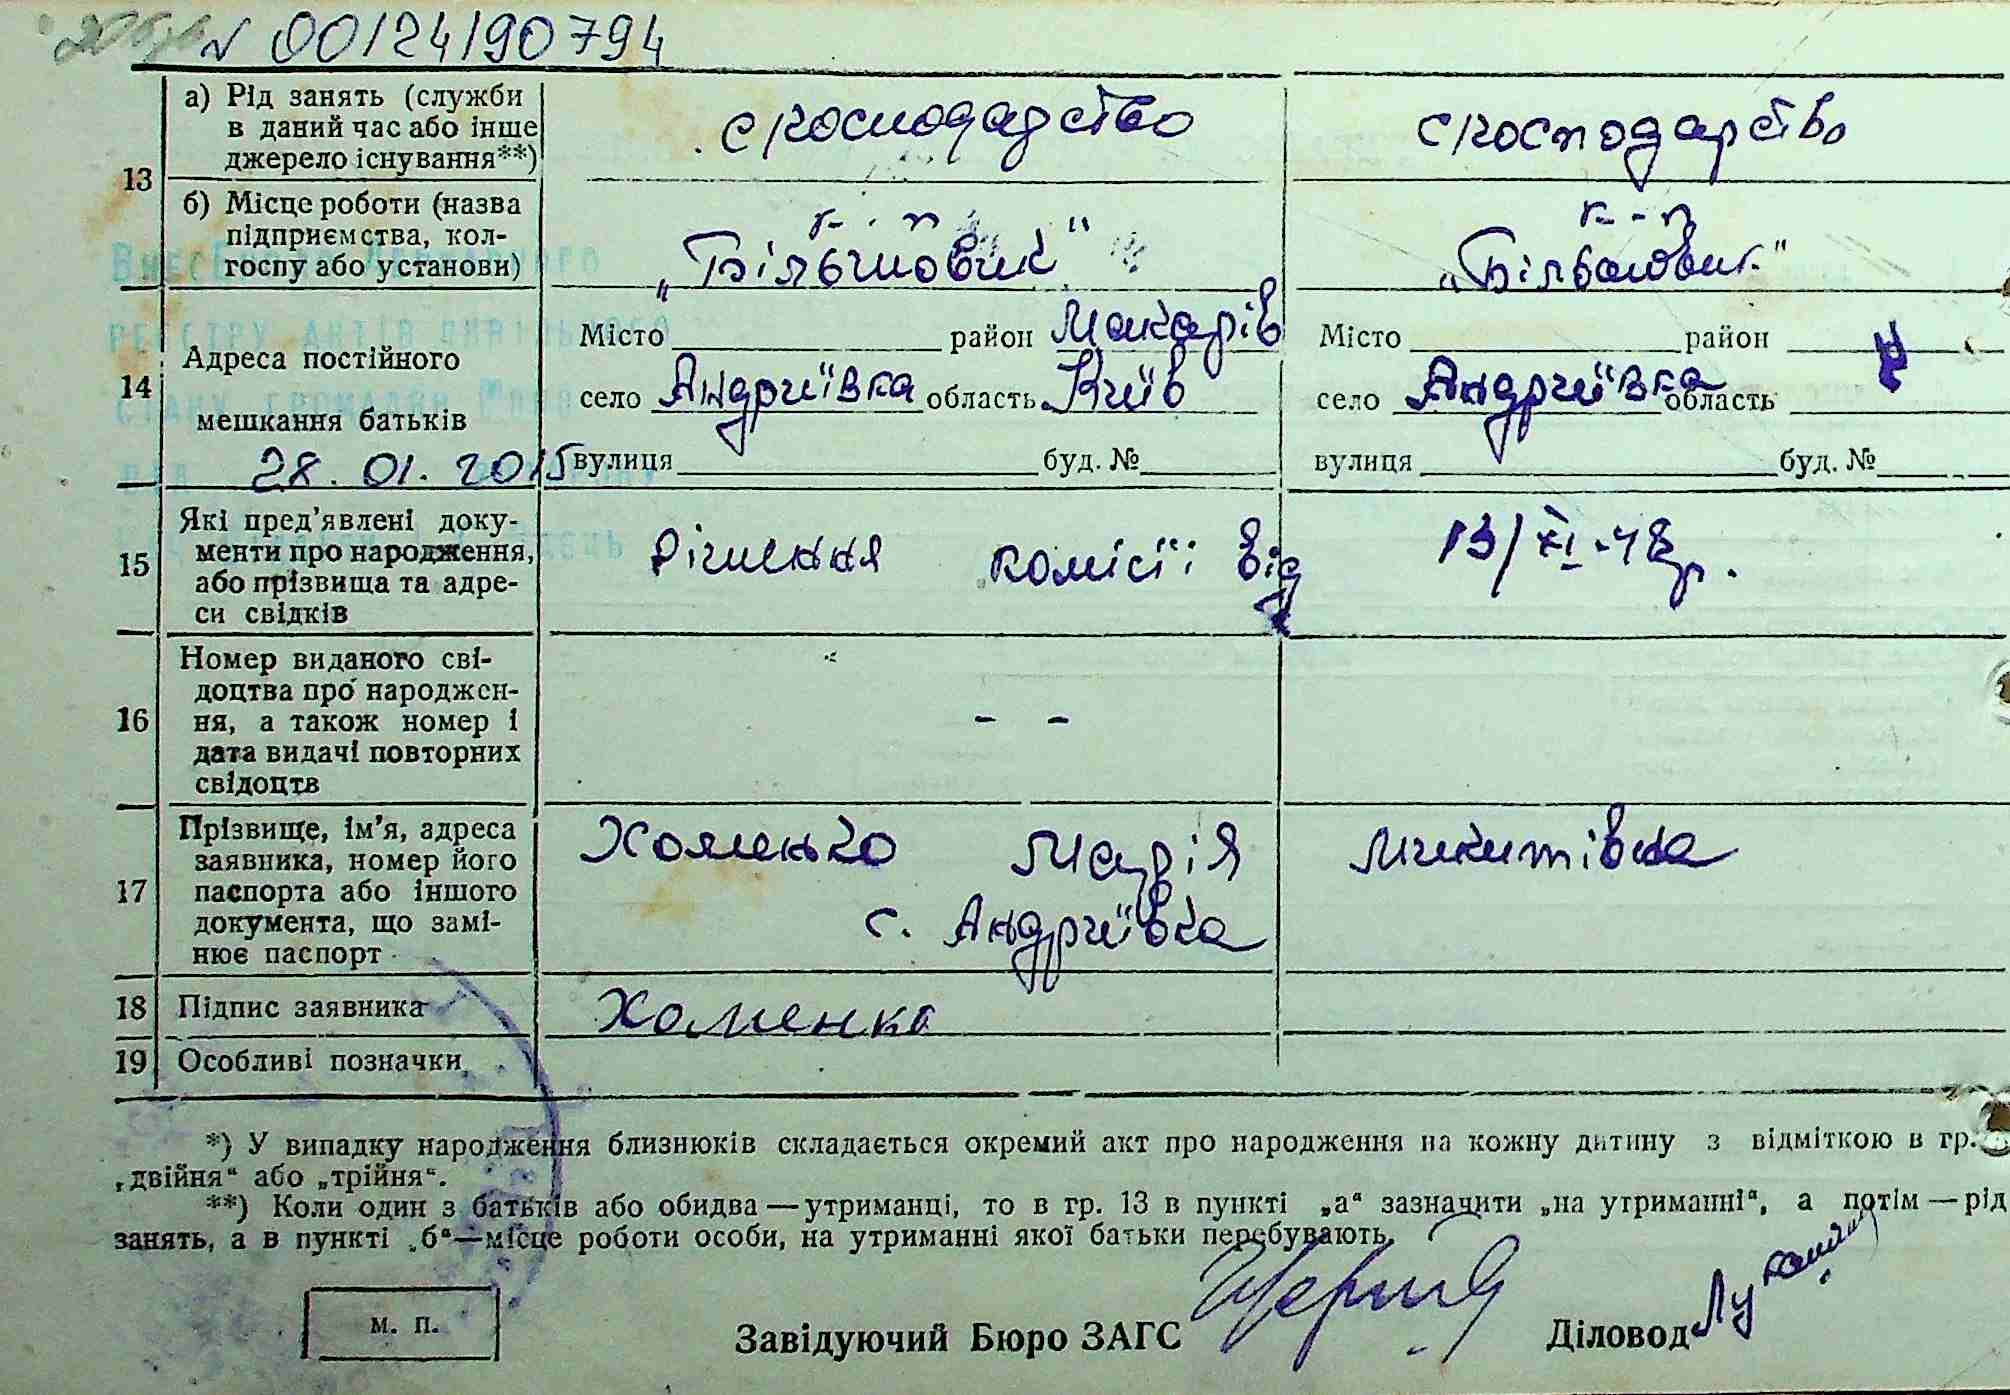 № 00124190794
а) Рід занять (служби
в даний час або інше
джерело існування**)
с господарство
с господарство
13
б) Місце роботи (назва
підприємства, кол-
госпу або установи)
к-п
„Більшовик"
к-п
„Більшовик"
Внесено до Державного
реєстру актів цивільного
стану громадян
14
Адреса постійного
мешкання батьків
28.01.2015
Місто район Макарів
село Андриївка область Київ
вулиця буд. №
Місто район
село Андриївка область
вулиця буд. №
15
Які пред'явлені доку-
менти про народження,
або прізвища та адре-
си свідків
Рішення комісії від 13/XI-48р.
16
Номер виданого сві-
доцтва про народжен-
ня, а також номер і
дата видачі повторних
свідоцтв
- -
17
Прізвище, ім'я, адреса
заявника, номер його
паспорта або іншого
документа, що замі-
нює паспорт
Хоменко Марія Микитівна
с. Андриївка
18 Підпис заявника Хоменко
19 Особливі позначки
*) У випадку народження близнюків складається окремий акт про народження на кожну дитину з відміткою в гр.
„двійня“ або „трійня“.
**) Коли один з батьків або обидва — утриманці, то в гр. 13 в пункті „а“ зазначити „на утриманні“, а потім — рід
занять, а в пункті „б“—місце роботи особи, на утриманні якої батьки перебувають.
м. п.
Завідуючий Бюро ЗАГС
Діловод